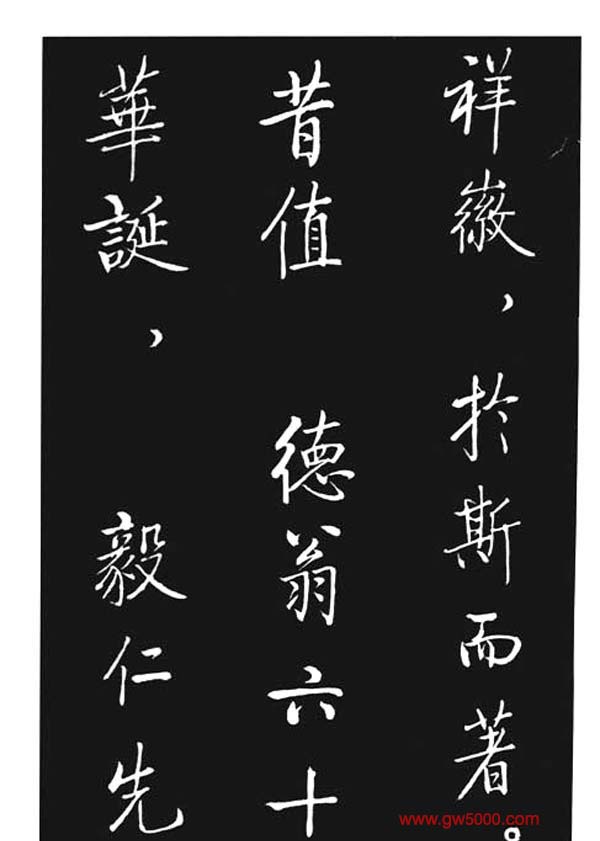 祥徽，於斯而著。
昔值 德翁六十
華誕， 毅仁先
www.gw5000.com